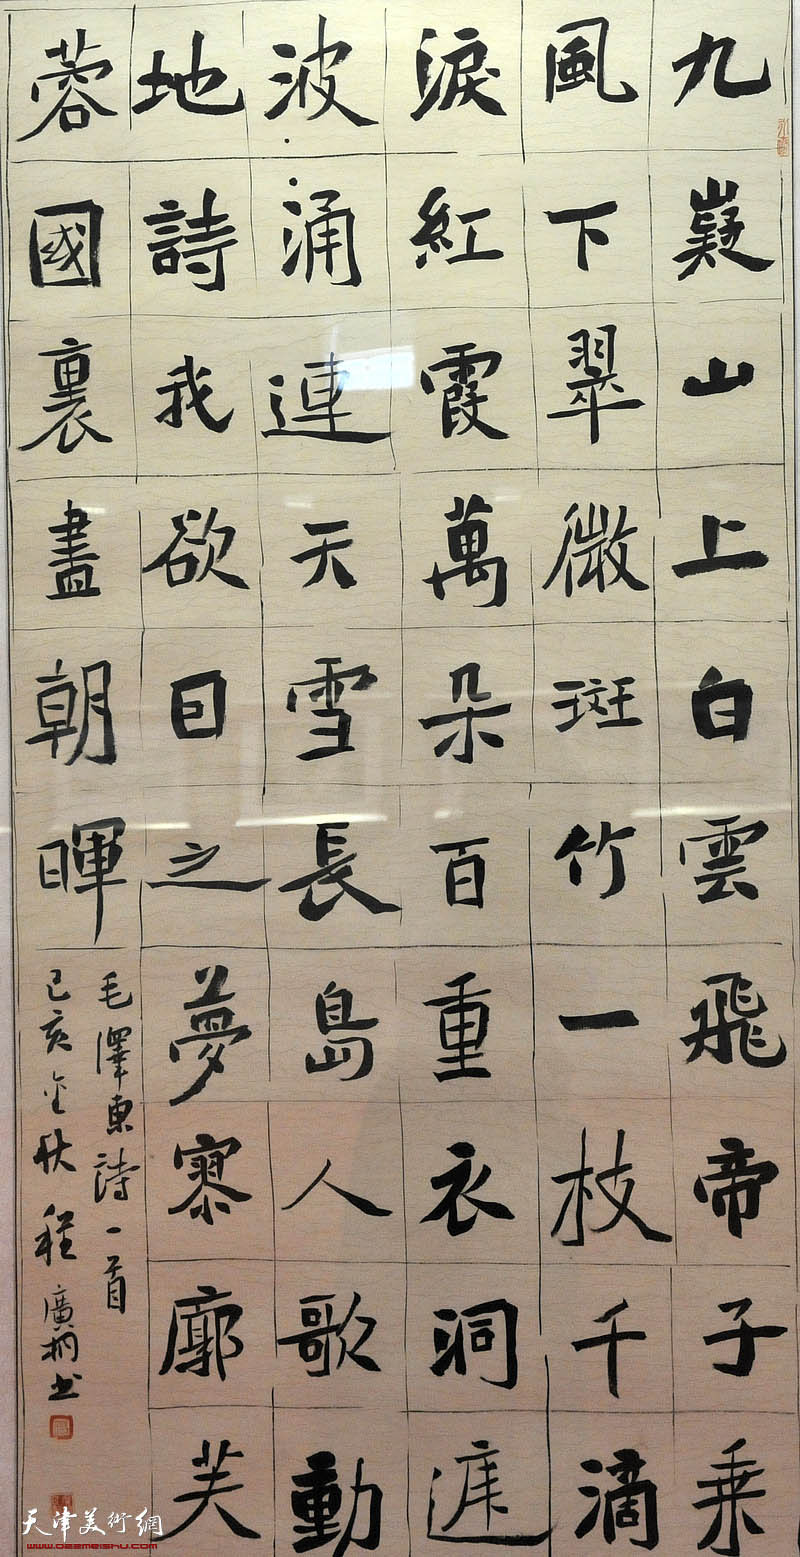 九嶷山上白雲飛帝子乘
風下翠微斑竹一枝千滴
淚紅霞萬朵百重衣洞庭
波涌連天雪長島人歌動
地詩我欲囙之夢寥廓芙
蓉國裏盡朝暉
毛澤東詩一首
己亥金秋程廣书
天津美術網
www.022meishu.com